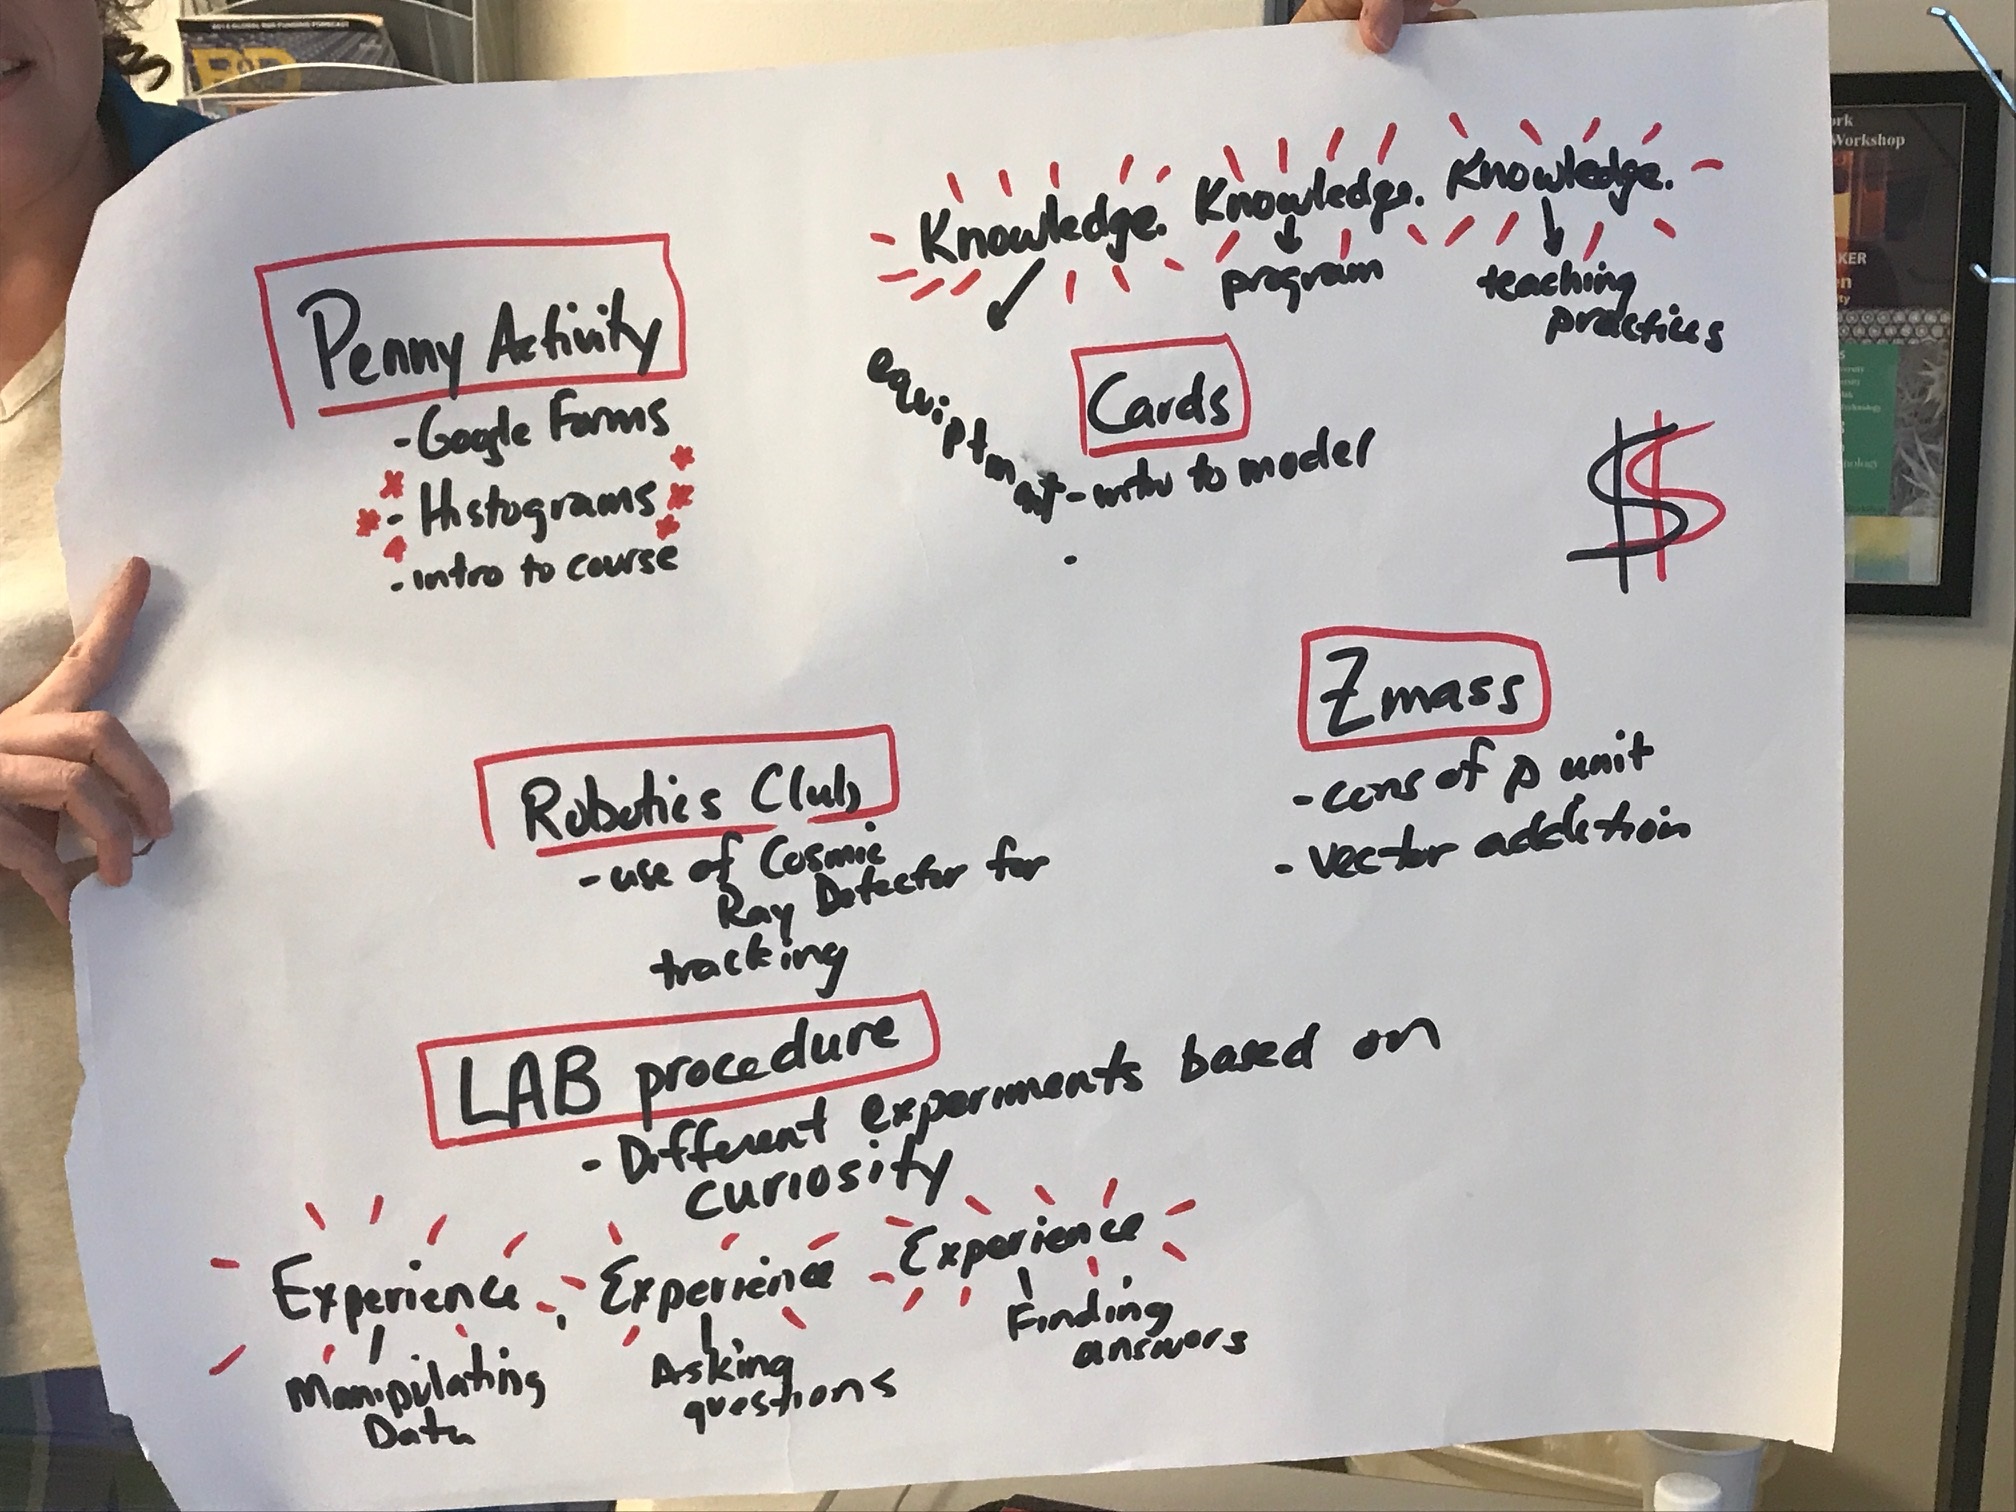 2014 GLOBAL R&D FUNDING FORECAST
R&D
Workshop
Knowledge. Knowledge. Knowledge.
equiptment
program
teaching
practices
Penny Activity
- Google Forms
- Histograms
- intro to course
Cards
- intro to model
$$
Z mass
- cons of p unit
- vector addition
Robotics Club
- use of Cosmic
Ray Detector for
tracking
LAB procedure
- Different experiments based on
curiosity
Experience. Experience Experience
Manipulating
Data
Asking
questions
Finding
answers